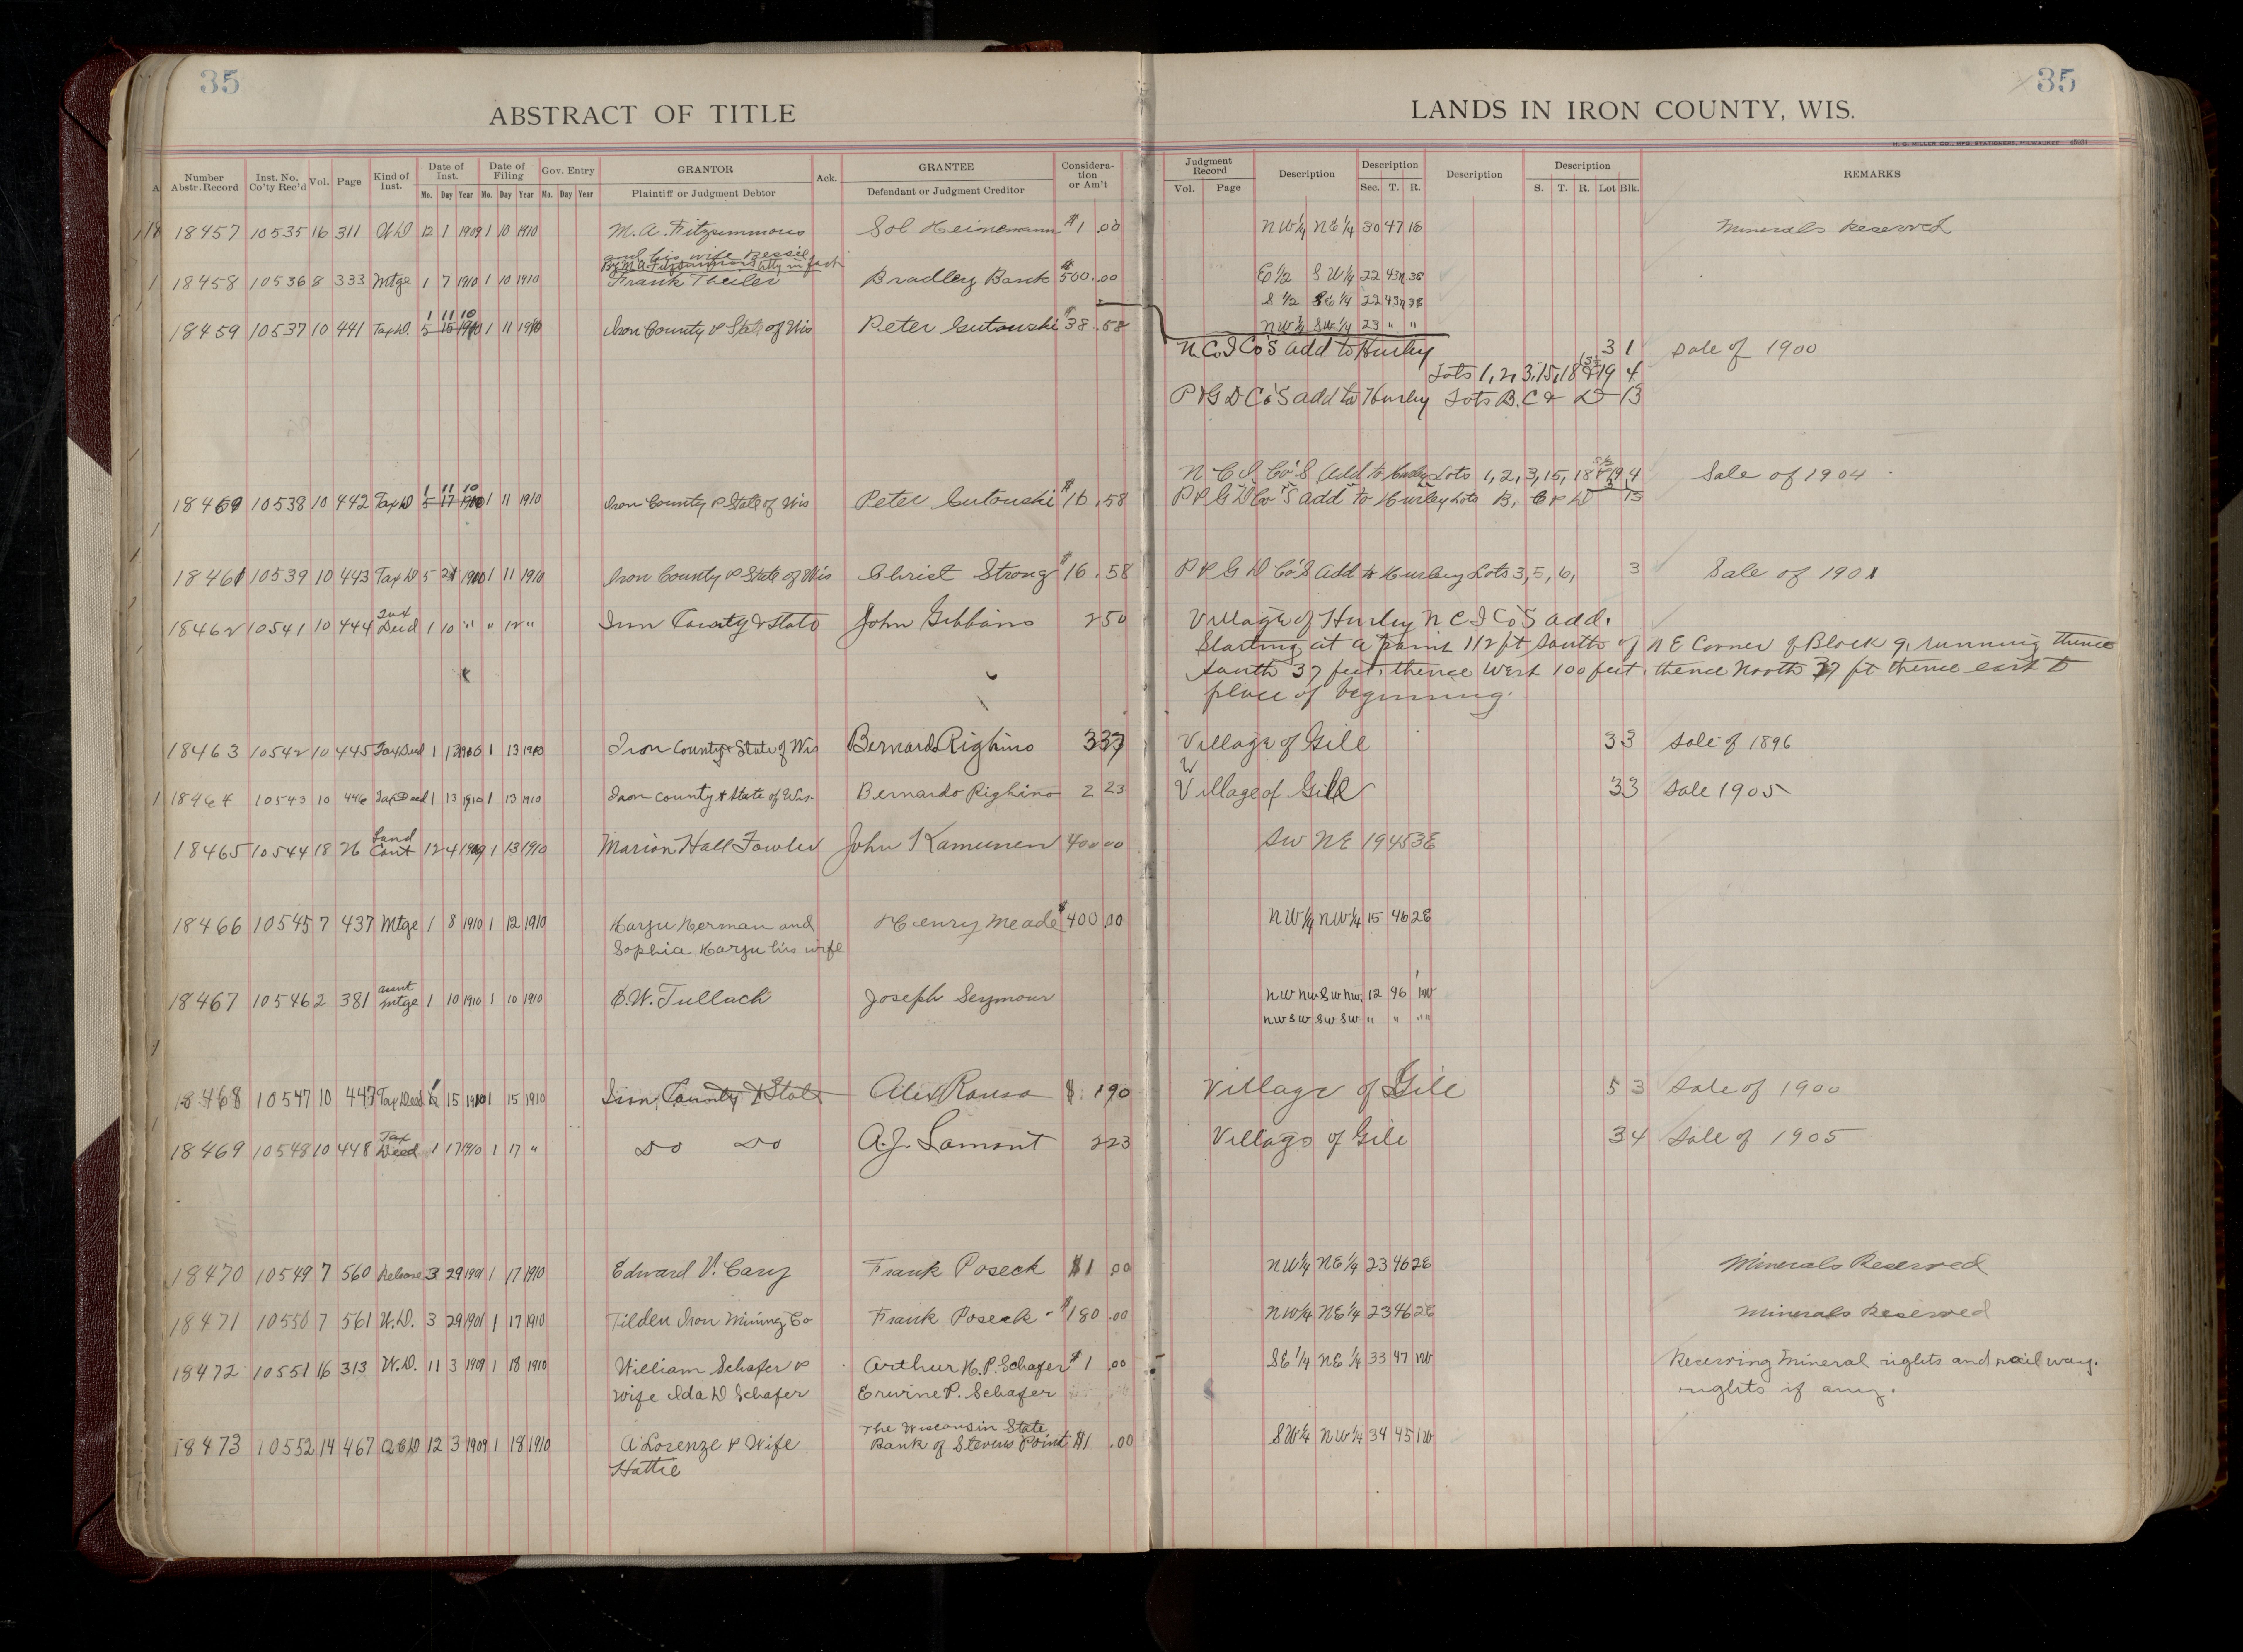 35
35
ABSTRACT OF TITLE
LANDS IN IRON COUNTY, WIS.
H. C. MILLER CO., MFG. STATIONERS, MILWAUKEE
Number Abstr. Record Inst. No. Co'ty Rec'd Vol. Page Kind of Inst. Date of Inst. Mo. Day Year Date of Filing Mo. Day Year Gov. Entry Mo. Day Year GRANTOR Plaintiff or Judgment Debtor Ack. GRANTEE Defendant or Judgment Creditor Considera-tion or Am't Judgment Record Vol. Page Description Description Sec. T. R. Description Description S. T. R. Lot Blk. REMARKS
18457 10535 16 311 W D 12 1 1909 1 10 1910 M. A. Fitzsimmons Sol Heinemann $1.00 NW1/4 NE1/4 30 47 1E Minerals Reserved
and his wife Bessie
By M. A. Fitzsimmons atty in fact
18458 10536 8 333 Mtge 1 7 1910 1 10 1910 Frank Theiler Bradley Bank $500.00 E1/2 SW1/4 22 43N 3E
S1/2 SE1/4 22 43N 3E
1 11 10
18459 10537 10 441 Tax D. 5 15 1910 1 11 1910 Iron County & State of Wis Peter Gutouski $38.58 NW1/4 SW1/4 23 " "
N. C. I Co's add to Hurley 3 1 Sale of 1900
Lots 1, 2, 3, 15, 18 & 19 4
P & G D Co's add to Hurley Lots B. C & D 13
N. C. I. Co's Add to Hurley Lots 1, 2, 3, 15, 18 & 19 4 Sale of 1904
1 11 10
18460 10538 10 442 Tax D 5 17 1910 1 11 1910 Iron County & State of Wis Peter Gutouski $16.58 P & G D Co's add to Hurley Lots B, C & D 13
18461 10539 10 443 Tax D 5 21 1910 1 11 1910 Iron County & State of Wis Christ Strong $16.58 P & G D Co's Add to Hurley Lots 3, 5, 6, 3 Sale of 1901
18462 10541 10 444 Tax Deed 1 10 " " 12 " Iron County & State John Gibbons 2 50 Village of Hurley N C I Co's add.
Starting at a point 112 ft South of N E Corner of Block 9, running thence
South 37 feet, thence West 100 feet, thence North 37 ft thence east to
place of beginning.
18463 10542 10 445 Tax Deed 1 13 1 13 1910 Iron County & State of Wis Bernardo Righino 3 37 Village of Gile 3 3 Sale of 1896
18464 10543 10 446 Tax Deed 1 13 1910 1 13 1910 Iron County & State of Wis. Bernardo Righino 2 23 Village of Gile 3 3 Sale 1905
18465 10544 18 26 Land Cont 12 4 1909 1 13 1910 Marion Hall Fowler John Kamunen 400 00 SW NE 19 45 3E
18466 10545 7 437 Mtge 1 8 1910 1 12 1910 Harju Herman and Henry Meade $400.00 NW1/4 NW1/4 15 46 2E
Sophia Harju his wife
18467 10546 2 381 mtge 1 10 1910 1 10 1910 D. W. Tulloch Joseph Seymour NW NW SW NW 12 46 1W
NW SW SW SW " " "
18468 10547 10 447 Tax Deed 1 15 1910 1 15 1910 Iron County & State Alex Rousa $ 1 90 Village of Gile 5 3 Sale of 1900
18469 10548 10 448 Tax Deed 1 17 1910 1 17 " Do Do A. J. Lamont 2 23 Village of Gile 3 4 Sale of 1905
18470 10549 7 560 Release 3 29 1901 1 17 1910 Edward V. Cary Frank Poseck $1.00 NW1/4 NE1/4 23 46 2E Minerals Reserved
18471 10550 7 561 W. D. 3 29 1901 1 17 1910 Tilden Iron Mining Co Frank Poseck $180.00 NW1/4 NE1/4 23 46 2E Minerals Reserved
18472 10551 16 313 W. D. 11 3 1909 1 18 1910 William Schafer & Arthur H. P. Schafer $1.00 SE1/4 NE1/4 33 47 1W Reserving Mineral rights and railway.
wife Ida D Schafer Erwine P. Schafer rights if any.
18473 10552 14 467 Q C D 12 3 1909 1 18 1910 A Lorenze & Wife The Wisconsin State Bank of Stevens Point $1.00 SW1/4 NW1/4 34 45 1W
Hattie